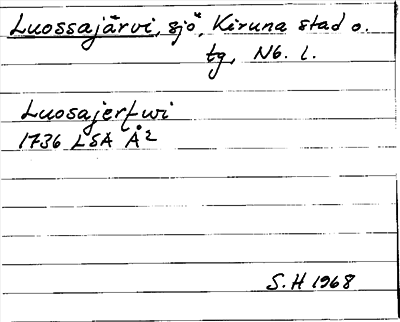 Luossajärvi, sjö, Kiruna stad o.
tg, Nb. l.
Luosajerfwi
1736 LSA Å2
S.H 1968